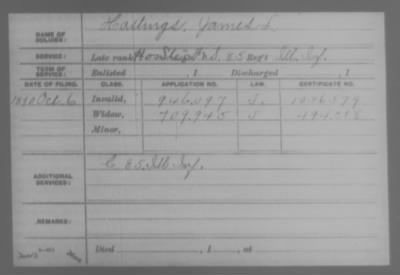 NAME OF SOLDIER: Hastings, James L
SERVICE: Late rank Hos Stew F. & S. 85 Reg't Ill. Inf.
TERM OF SERVICE: Enlisted , 1 Discharged , 1
DATE OF FILING. CLASS. APPLICATION NO. LAW. CERTIFICATE NO.
1890 Oct. 6 Invalid, 946.097 J.
Widow, 709.945 J
Minor,
ADDITIONAL SERVICES: C 85 Ill Inf.
REMARKS:
Died , 1 , at